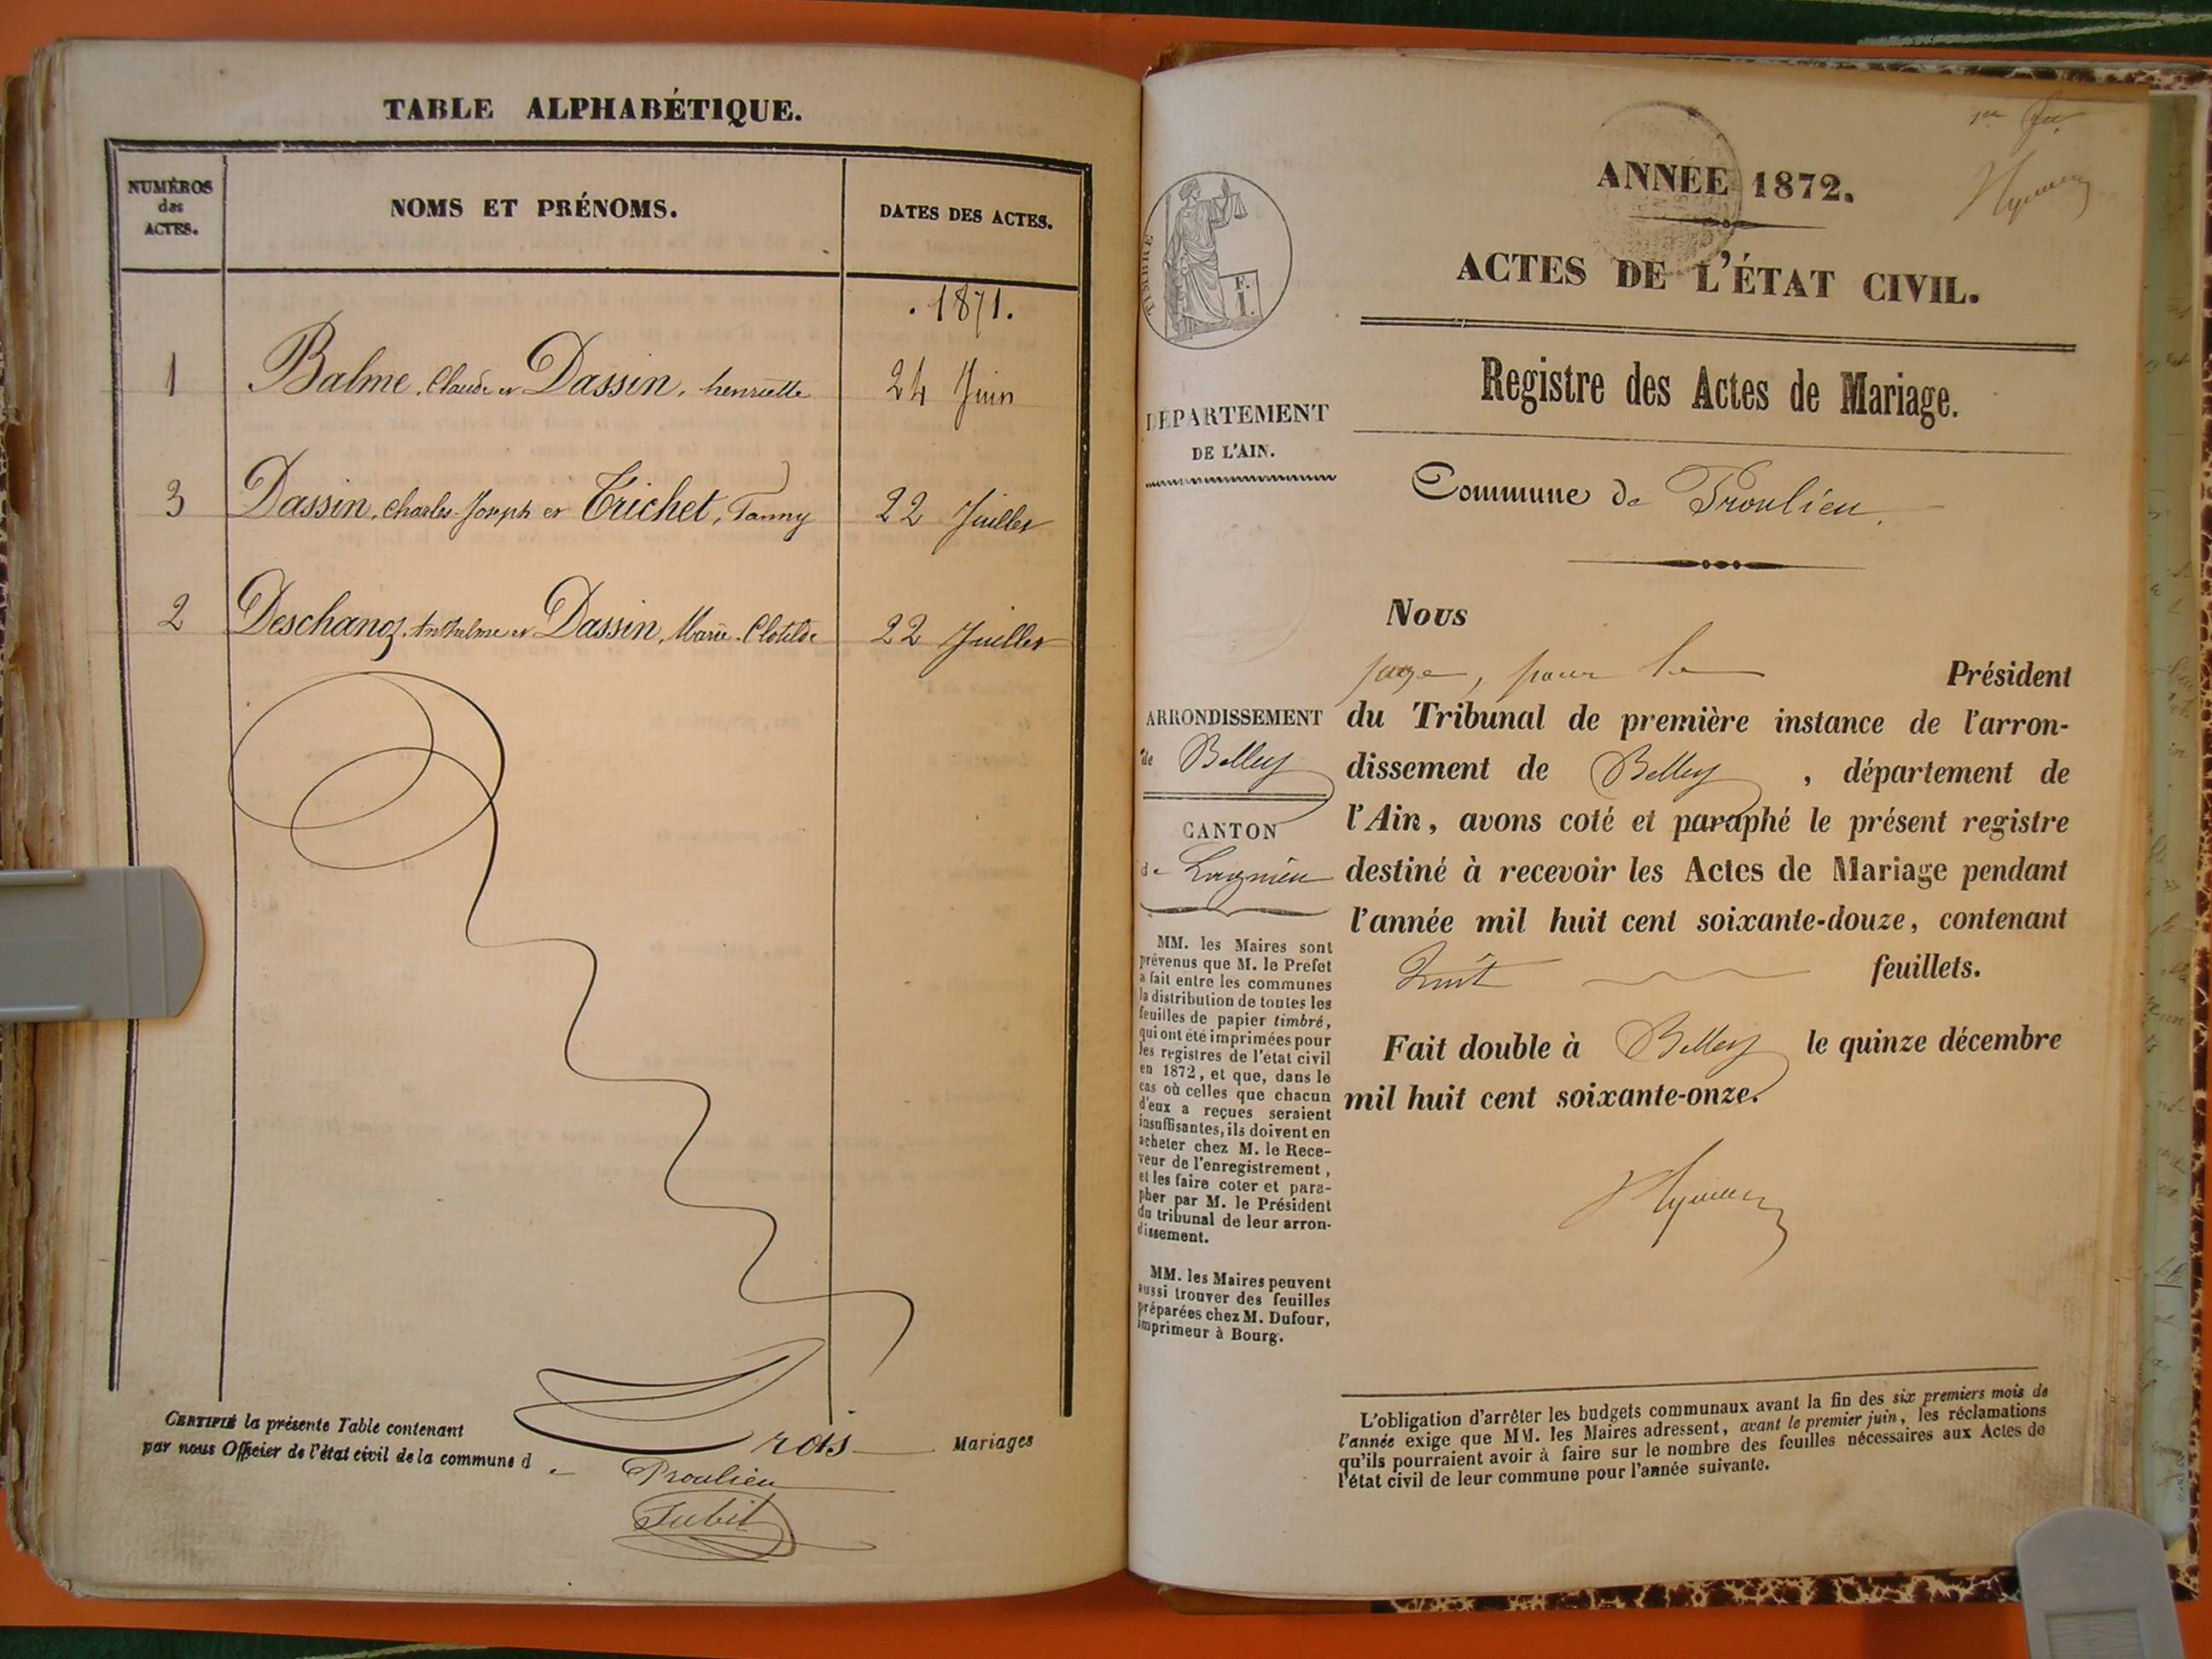 TABLE ALPHABÉTIQUE.
NUMÉROS
des
ACTES.
NOMS ET PRÉNOMS.
DATES DES ACTES.
. 1871.
1 Balme, Claude et Dassin, henriette 24 Juin
3 Dassin, Charles-Joseph et Trichet, Fanny 22 Juillet
2 Deschanoz, Anthelme et Dassin, Marie-Clotilde 22 Juillet
CERTIFIÉ la présente Table contenant Trois Mariages
par nous Officier de l'état civil de la commune de Proulieu
Jubit
ANNÉE 1872.
ACTES DE L'ÉTAT CIVIL.
Registre des Actes de Mariage.
Commune de Proulieu.
TIMBRE
F.
I.
DÉPARTEMENT
DE L'AIN.
ARRONDISSEMENT
de Belley
CANTON
de Lagnieu
MM. les Maires sont
prévenus que M. le Prefet
a fait entre les communes
la distribution de toutes les
feuilles de papier timbré,
qui ont été imprimées pour
les registres de l'état civil
en 1872, et que, dans le
cas où celles que chacun
d'eux a reçues seraient
insuffisantes, ils doivent en
acheter chez M. le Rece-
veur de l'enregistrement,
et les faire coter et para-
pher par M. le Président
du tribunal de leur arron-
dissement.
MM. les Maires peuvent
aussi trouver des feuilles
préparées chez M. Dufour,
imprimeur à Bourg.
Nous
juge, pour le Président
du Tribunal de première instance de l'arron-
dissement de Belley, département de
l'Ain, avons coté et paraphé le présent registre
destiné à recevoir les Actes de Mariage pendant
l'année mil huit cent soixante-douze, contenant
huit feuillets.
Fait double à Belley le quinze décembre
mil huit cent soixante-onze.
L'obligation d'arrêter les budgets communaux avant la fin des six premiers mois de
l'année exige que MM. les Maires adressent, avant le premier juin, les réclamations
qu'ils pourraient avoir à faire sur le nombre des feuilles nécessaires aux Actes de
l'état civil de leur commune pour l'année suivante.